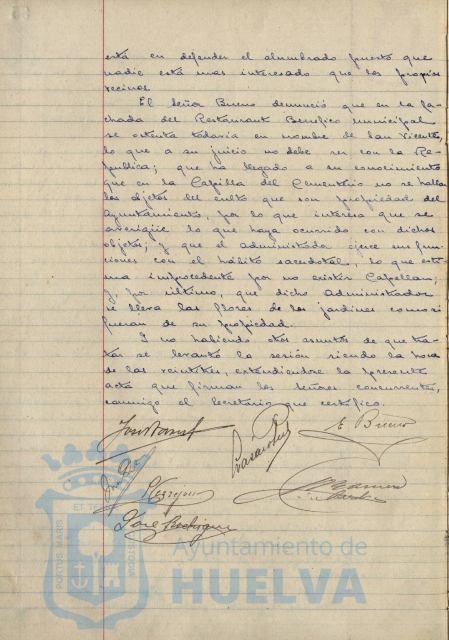 está en defender el alumbrado puesto que
nadie está mas interesado que los propios
vecinos.
El Señor Bueno denunció que en la fa-
chada del Restaurant Benéfico municipal
se ostenta todavía en nombre de San Vicente,
lo que a su juicio no debe ser con la Re-
pública; que ha llegado a su conocimiento
que en la Capilla del Cementerio no se hallan
los objetos del culto que son propiedad del
Ayuntamiento, por lo que interesa que se
averigüe lo que haya ocurrido con dichos
objetos; y que el administrador ejerce sus fun-
ciones con el hábito sacerdotal, lo que esti-
ma improcedente por no existir Capellan;
y, por último, que dicho Administrador
se lleva las flores de los jardines como si
fueran de su propiedad.
Y no habiendo otros asuntos de que tra-
tar se levantó la sesión siendo la hora
de las veintitres, extendiendose la presente
acta que firman los señores concurrentes,
conmigo el Secretario que certifico.
E Bueno
José Rodriguez
PORTUS MARIS
ET TERRAE
CUSTODIA
Ayuntamiento de
HUELVA